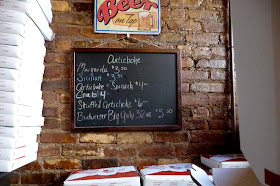 Beer
on Tap
Artichoke
Margarita $3.50
Sicilian $3.51
Artichoke + Spinach $4-
Crab $4
Stuffed Artichoke $6-
Budweiser Big Ugly 32oz $5.50